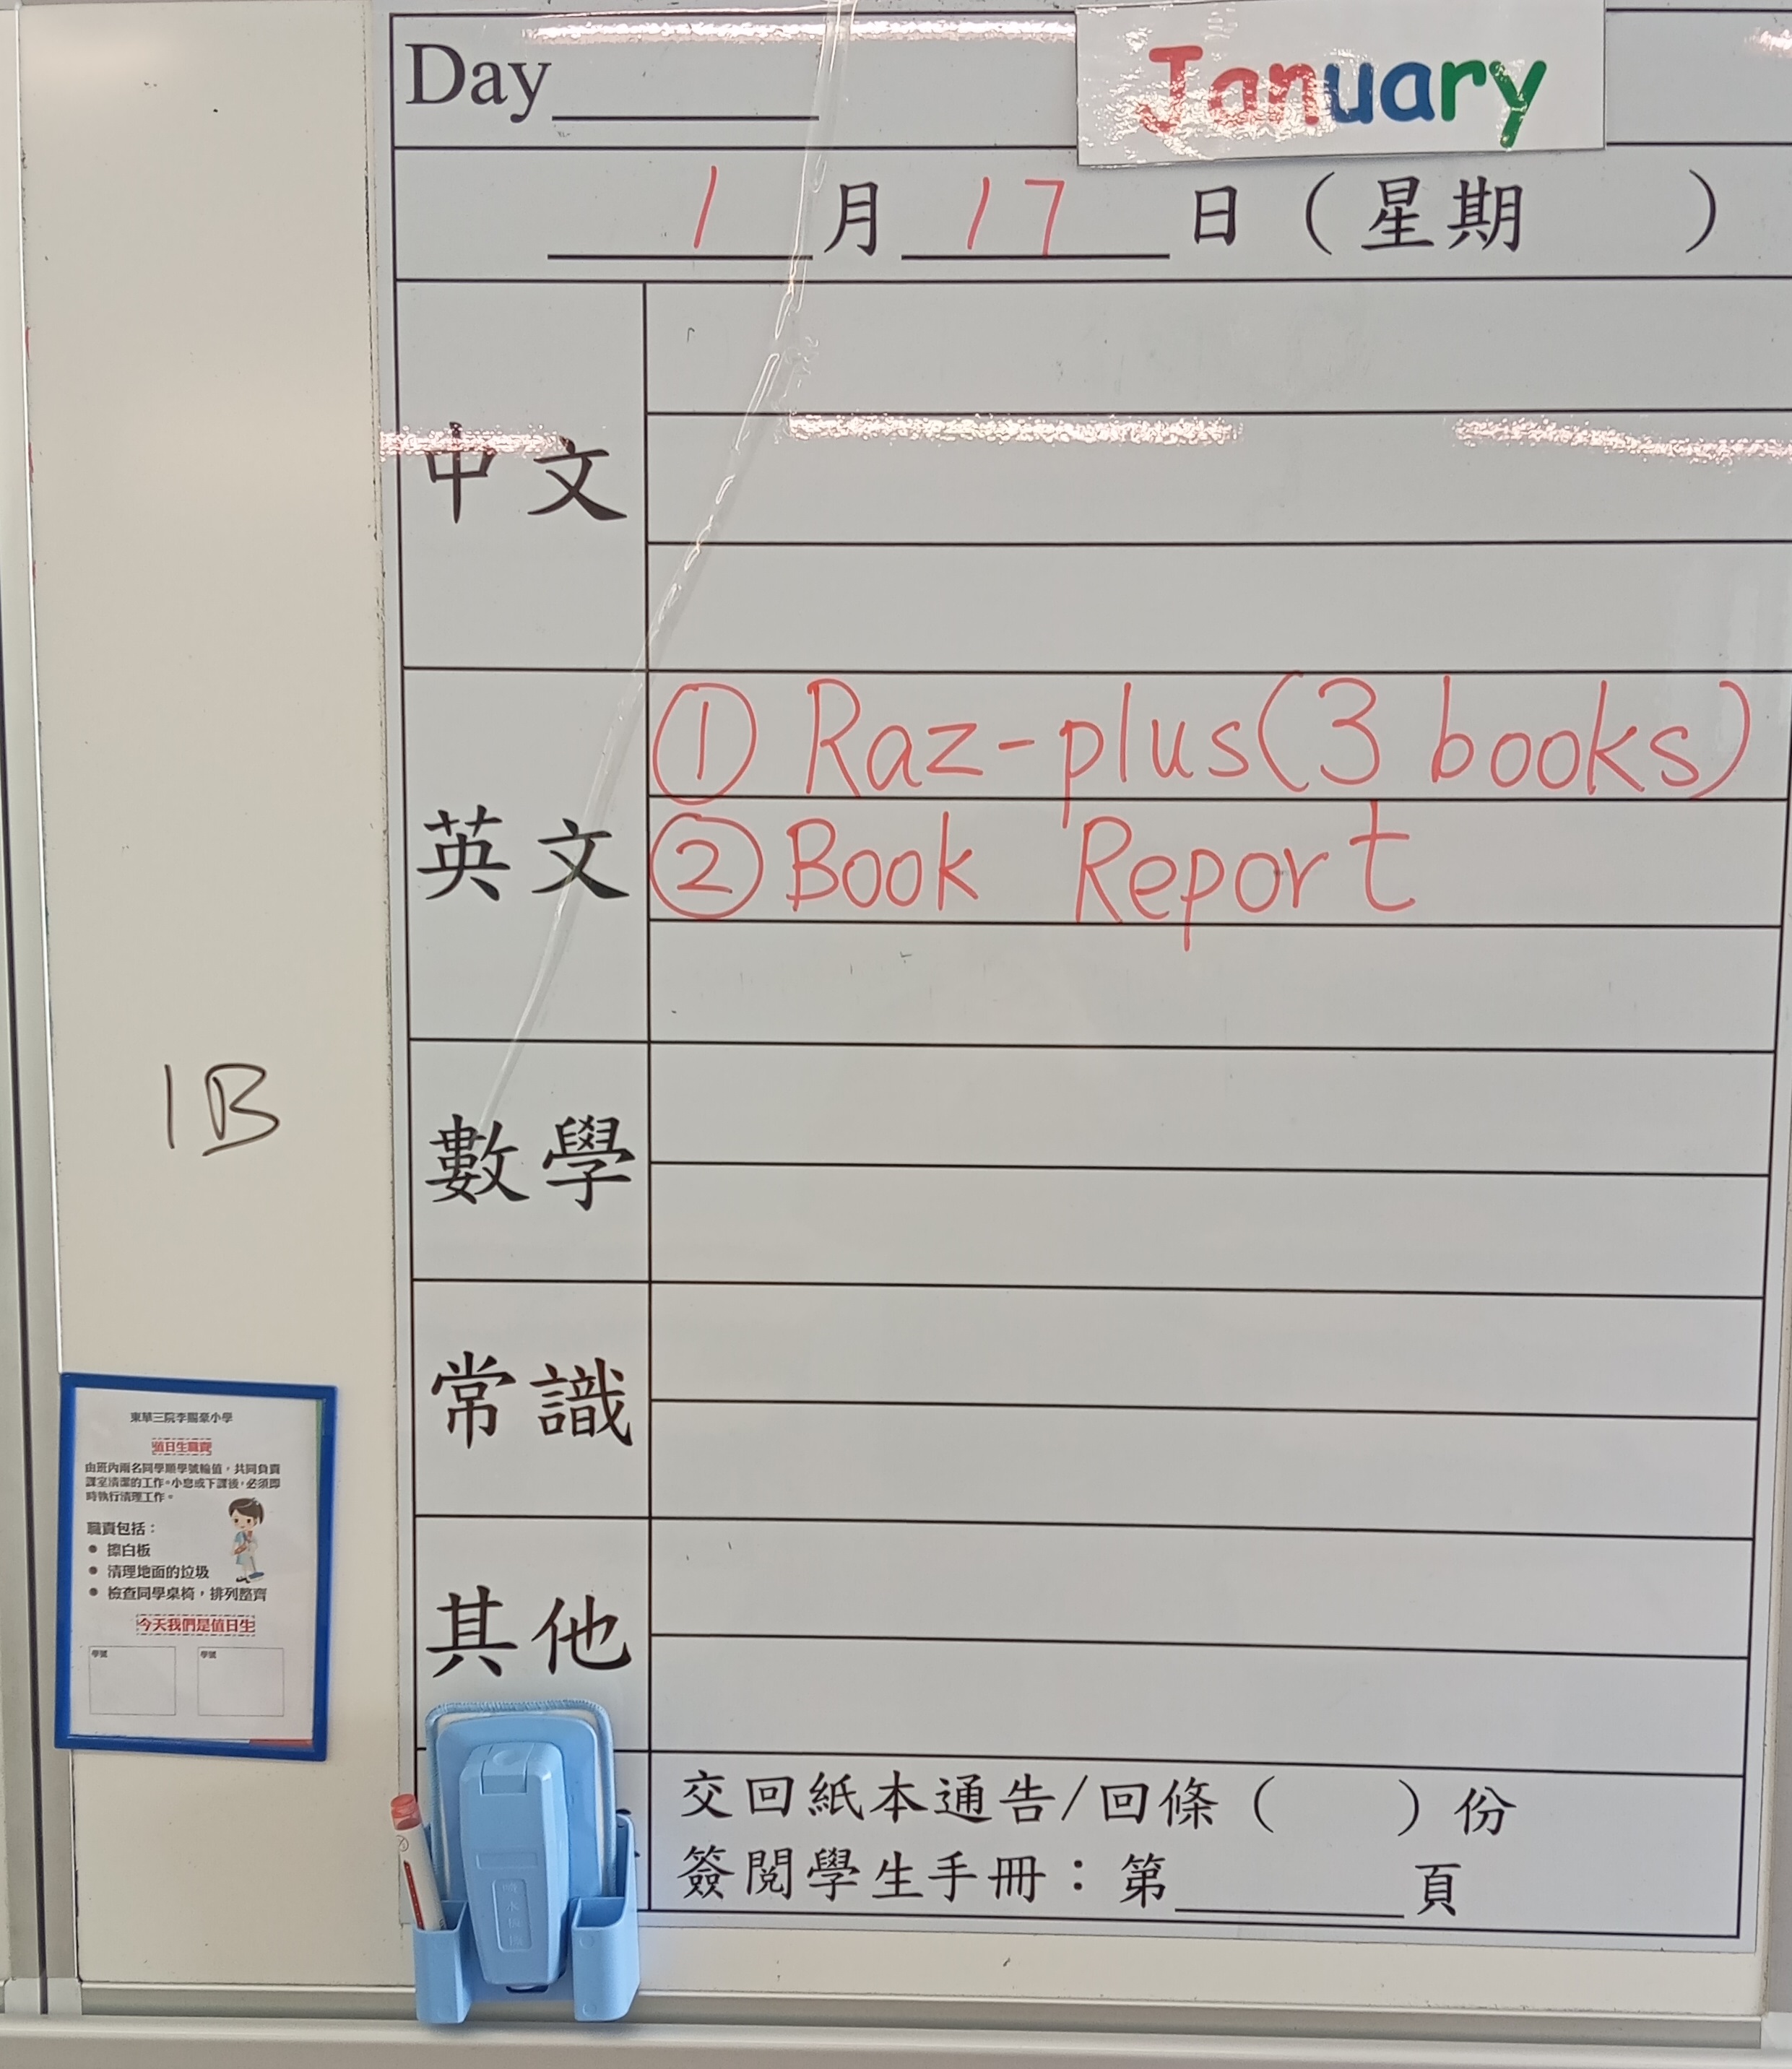 Day
January
1月17日(星期 )
中文
英文
① Raz-plus(3 books)
② Book Report
數學
常識
其他
交回紙本通告/回條( )份
簽閱學生手冊:第 頁
1B
東華三院李賜豪小學
值日生職責
由班內兩名同學順學號輪值,共同負責
課室清潔的工作。小息或下課後,必須即
時執行清理工作。
職責包括:
• 擦白板
• 清理地面的垃圾
• 檢查同學桌椅,排列整齊
今天我們是值日生
學號 學號